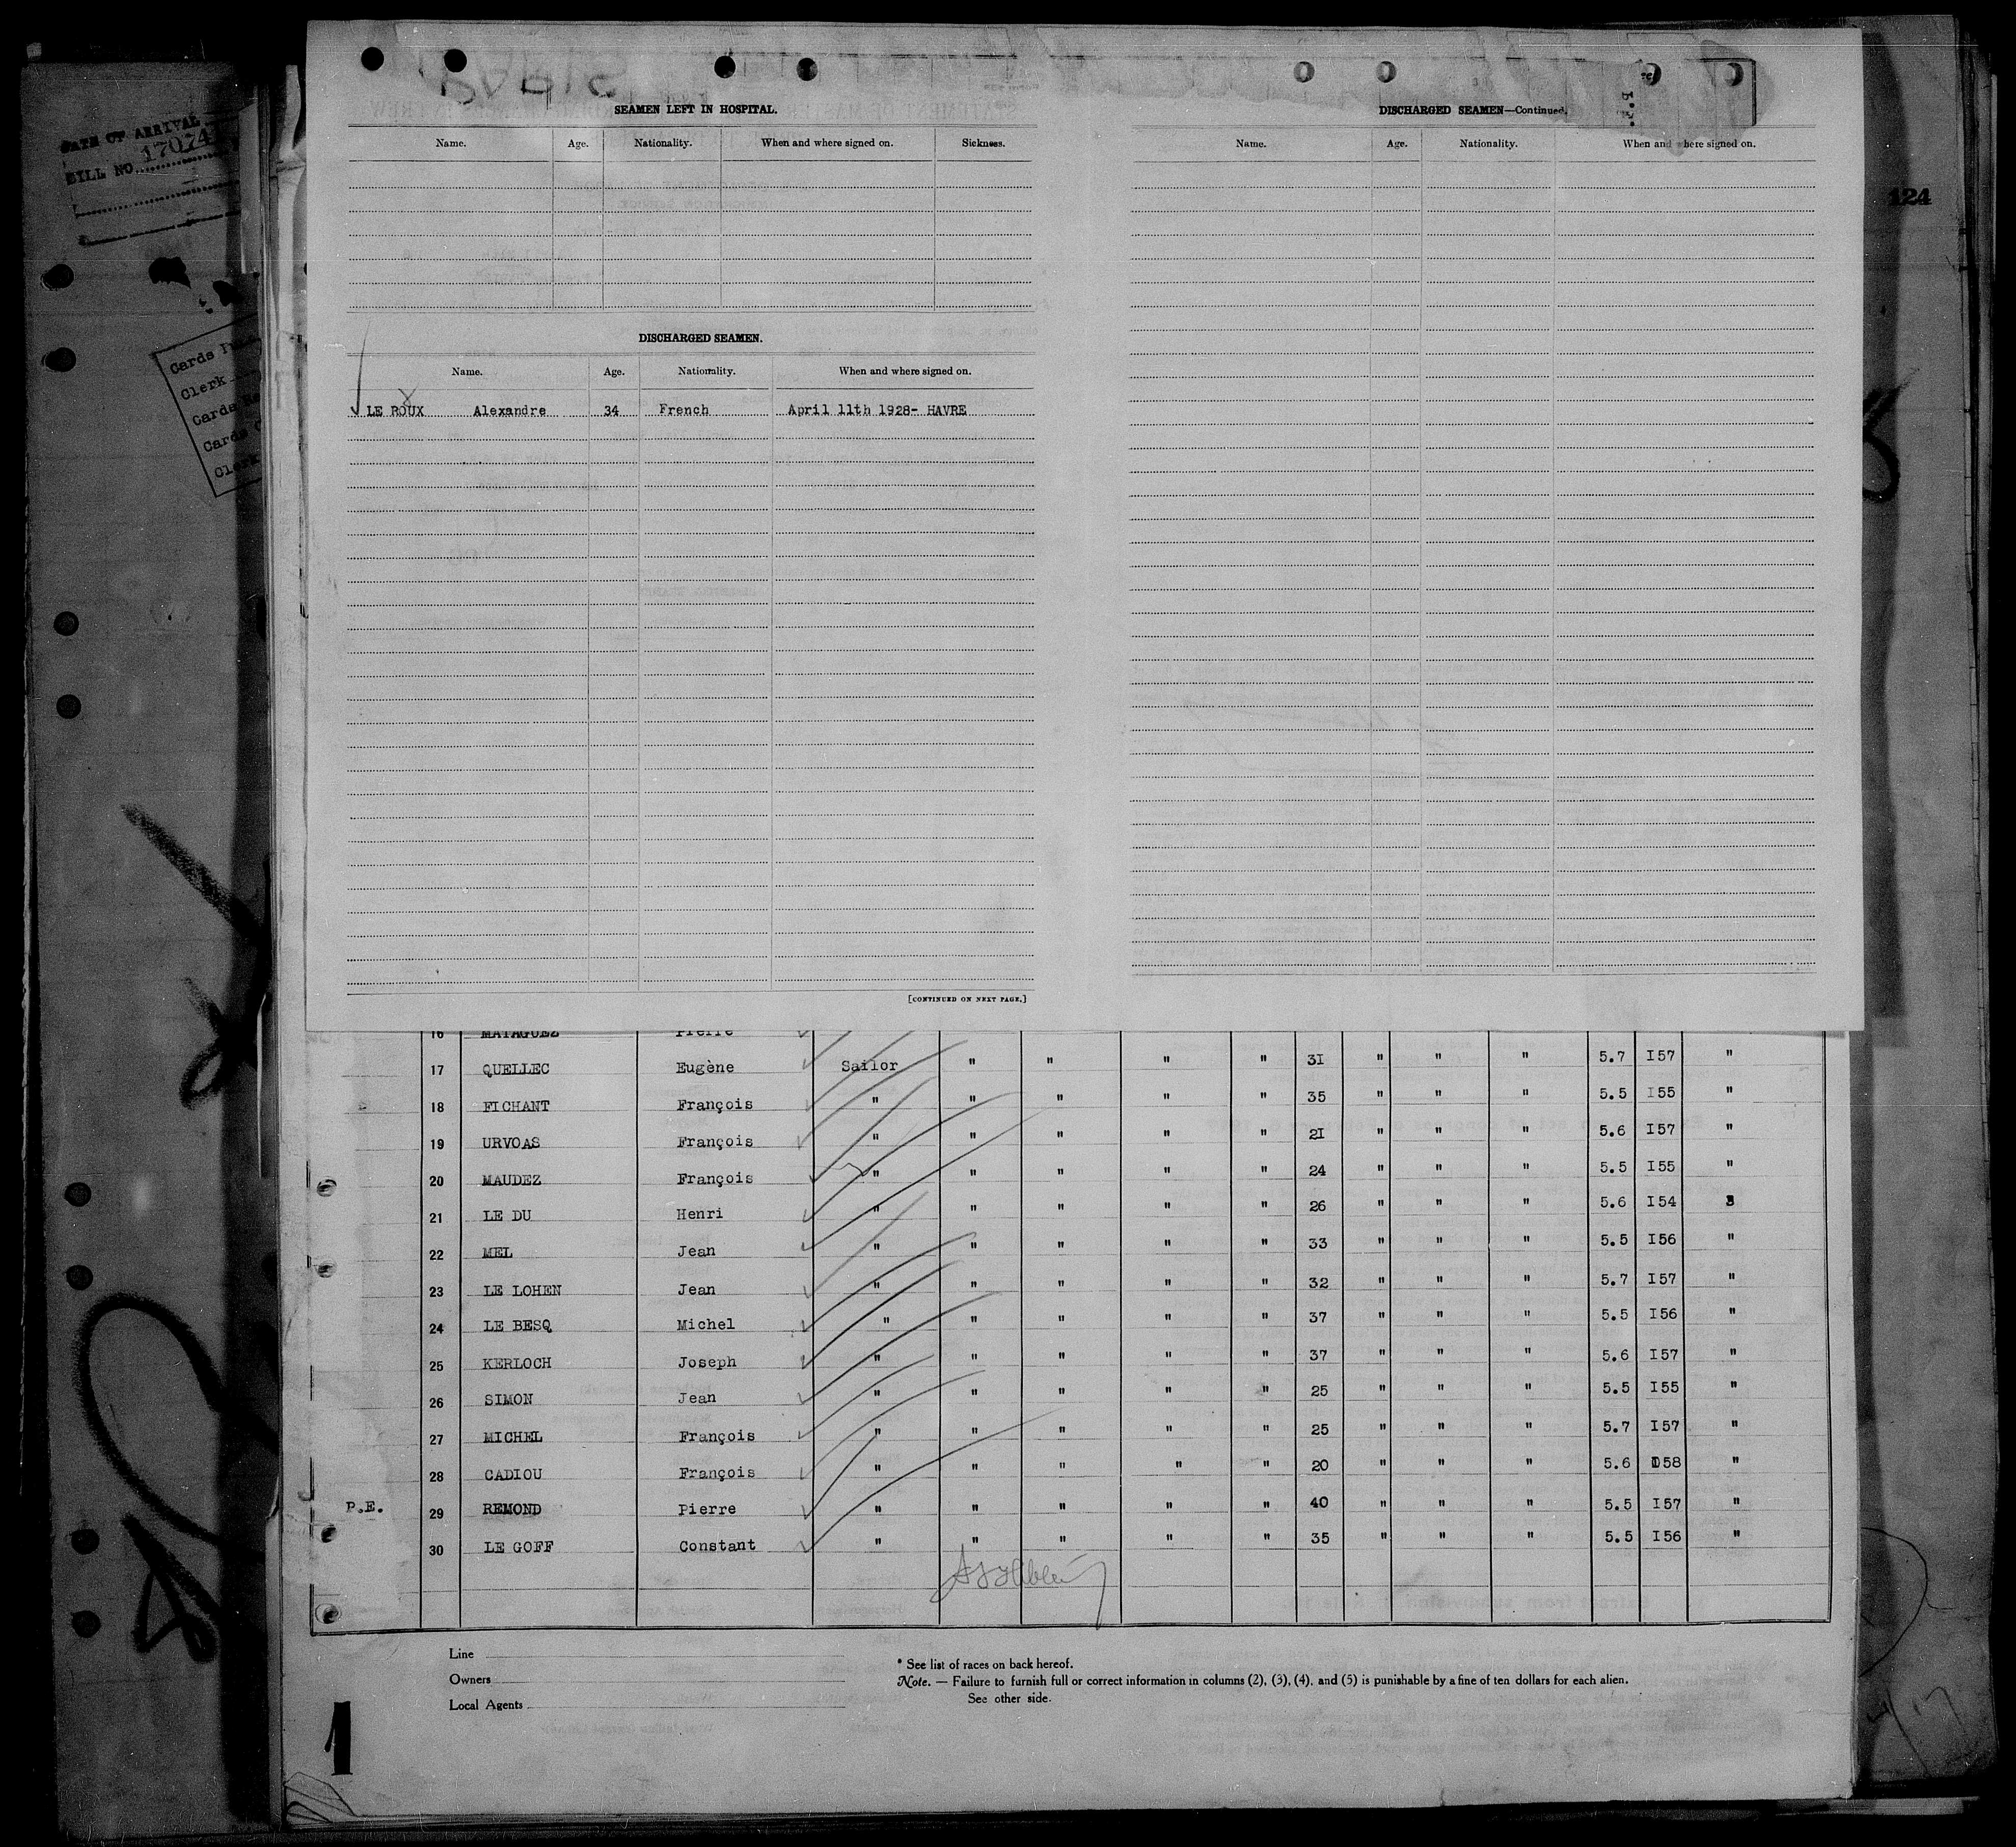 DATE OF ARRIVAL
BILL NO. 17074
Cards
Clerk
Cards
Cards
Clerk
124
SEAMEN LEFT IN HOSPITAL.
Name. Age. Nationality. When and where signed on. Sickness.
DISCHARGED SEAMEN.
Name. Age. Nationality. When and where signed on.
LE ROUX Alexandre 34 French April 11th 1928- HAVRE
[CONTINUED ON NEXT PAGE.]
DISCHARGED SEAMEN—Continued.
Name. Age. Nationality. When and where signed on.
16 MATAGUEZ Pierre
17 QUELLEC Eugène Sailor " " " " 31 " " " 5.7 I57 "
18 FICHANT François " " " " " 35 " " " 5.5 I55 "
19 URVOAS François " " " " " 21 " " " 5.6 I57 "
20 MAUDEZ François " " " " " 24 " " " 5.5 I55 "
21 LE DU Henri " " " " " 26 " " " 5.6 I54 "
22 MEL Jean " " " " " 33 " " " 5.5 I56 "
23 LE LOHEN Jean " " " " " 32 " " " 5.7 I57 "
24 LE BESQ Michel " " " " " 37 " " " 5.5 I56 "
25 KERLOCH Joseph " " " " " 37 " " " 5.6 I57 "
26 SIMON Jean " " " " " 25 " " " 5.5 I55 "
27 MICHEL François " " " " " 25 " " " 5.7 I57 "
28 CADIOU François " " " " " 20 " " " 5.6 I58 "
P.E. 29 REMOND Pierre " " " " " 40 " " " 5.5 I57 "
30 LE GOFF Constant " " " " " 35 " " " 5.5 I56 "
Line
Owners
Local Agents
* See list of races on back hereof.
Note. — Failure to furnish full or correct information in columns (2), (3), (4), and (5) is punishable by a fine of ten dollars for each alien.
See other side.
1